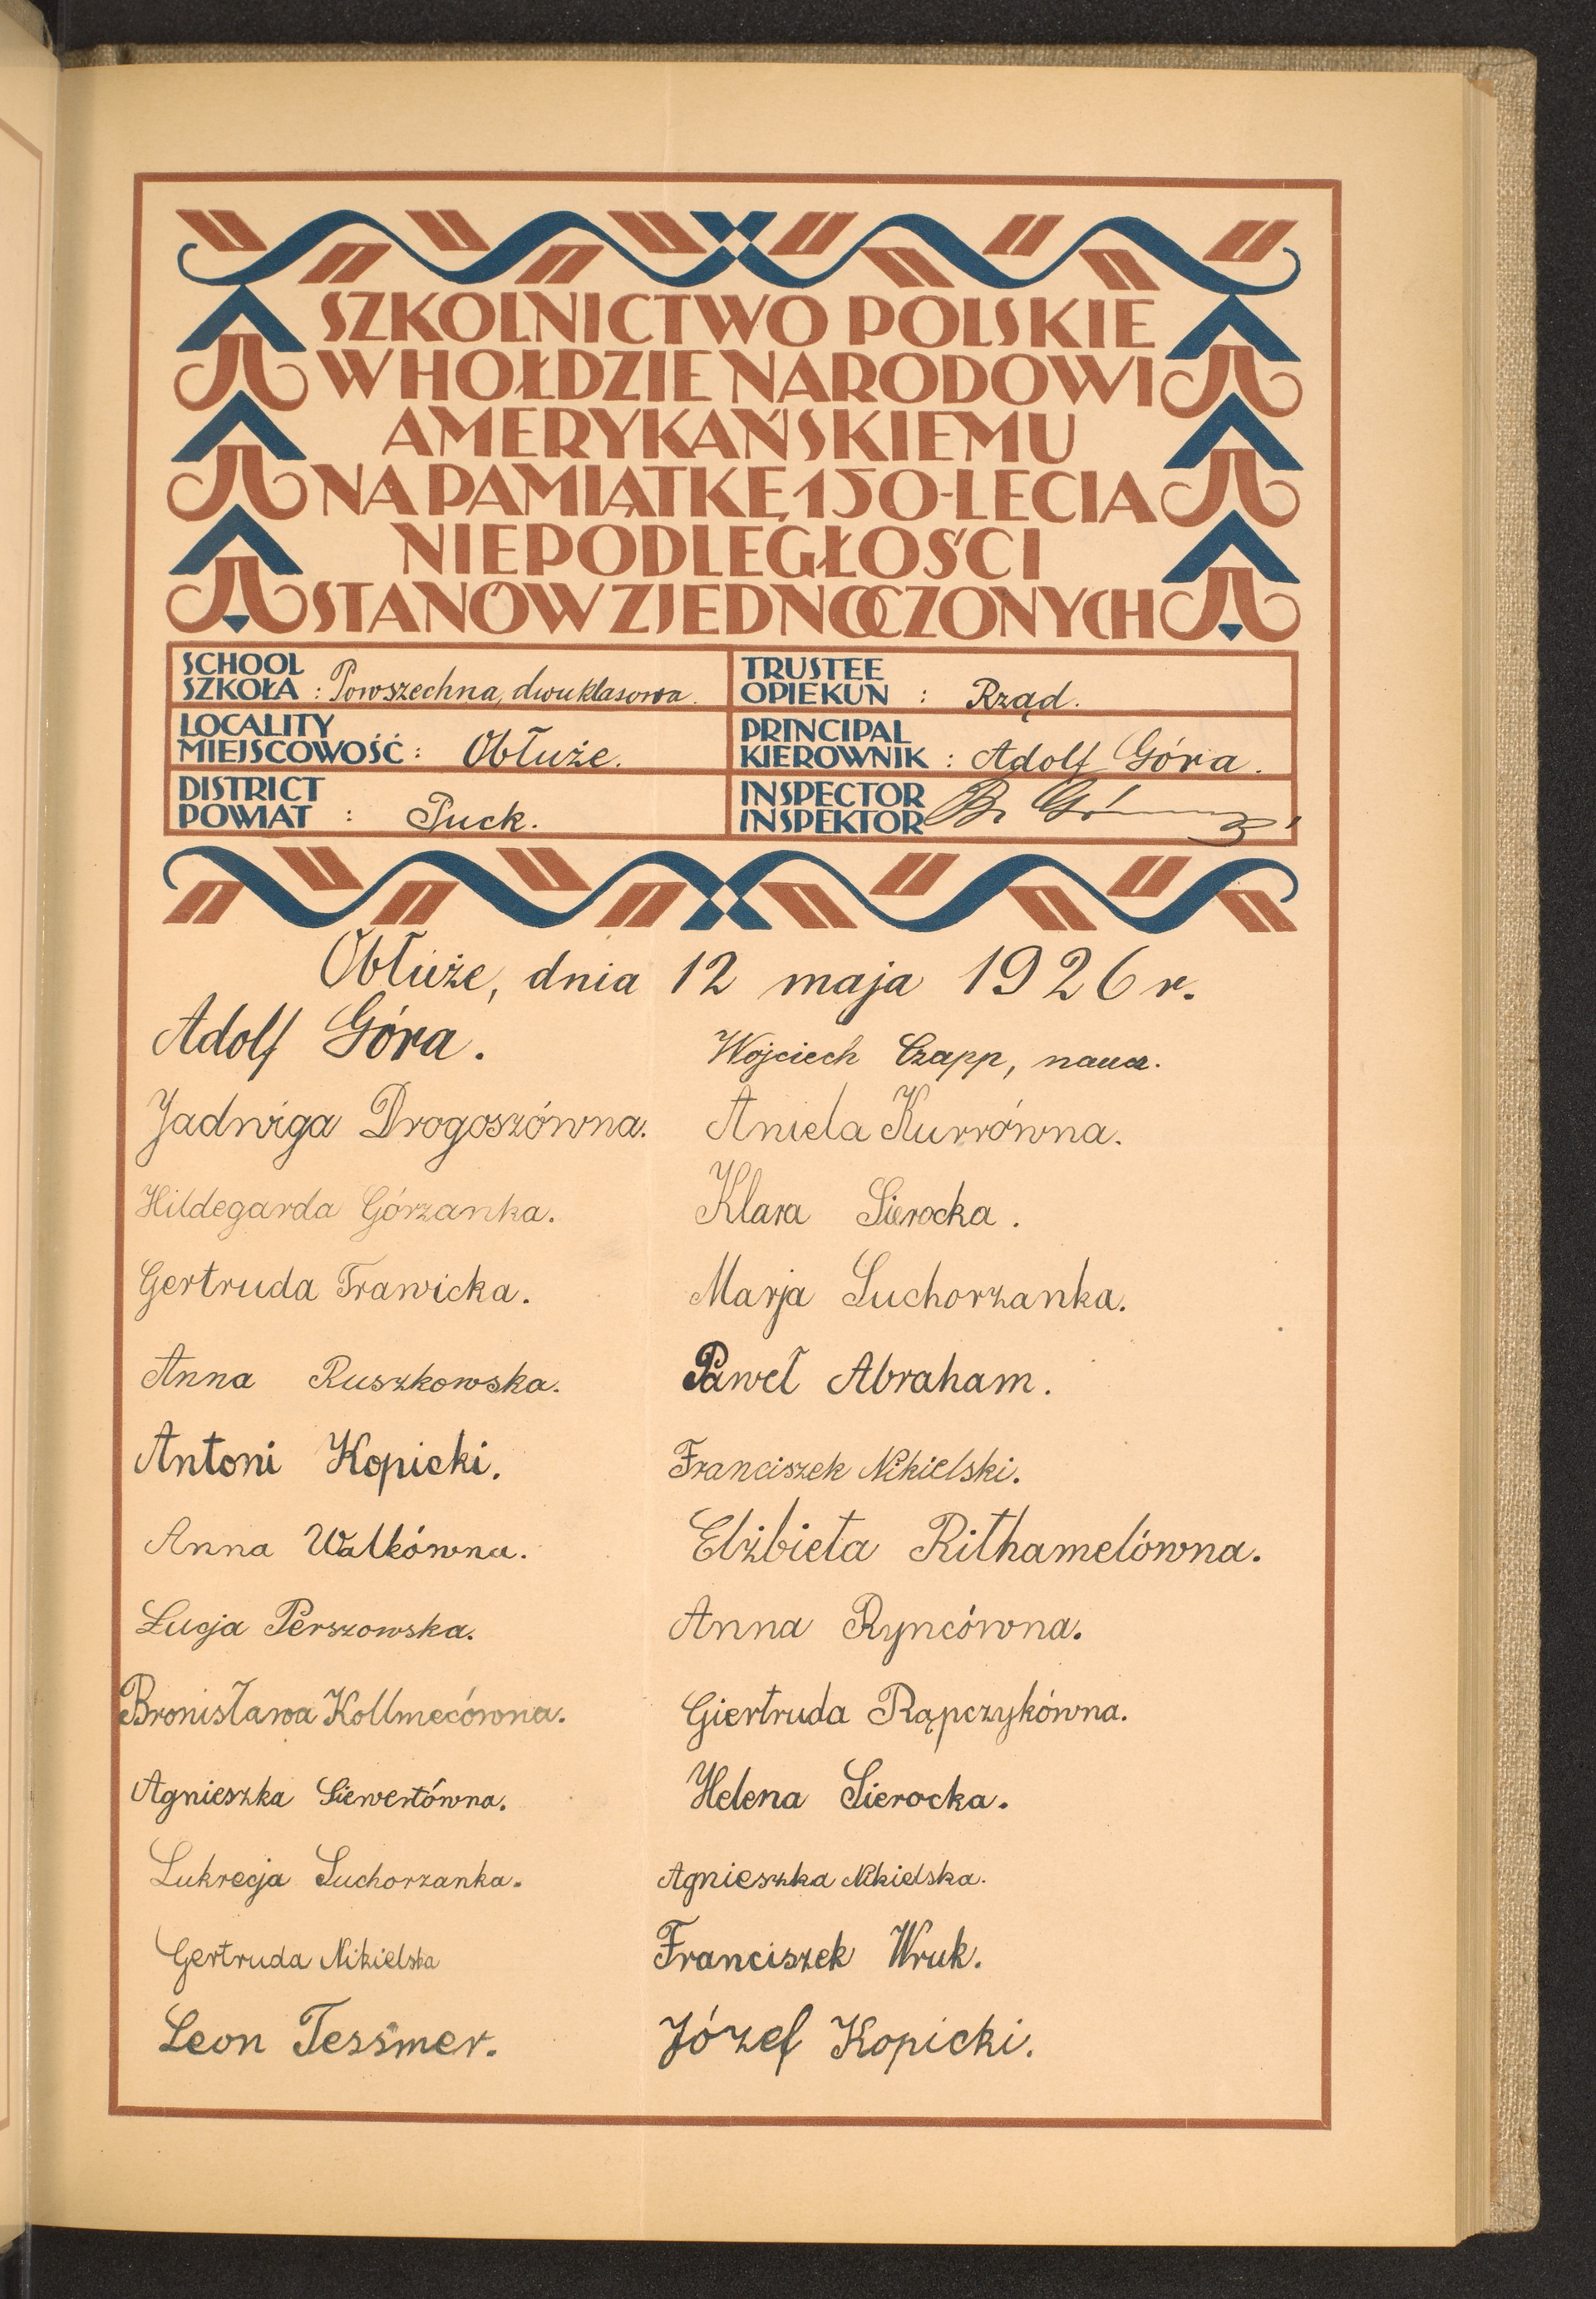 SZKOLNICTWO POLSKIE
W HOŁDZIE NARODOWI
AMERYKAŃSKIEMU
NA PAMIĄTKĘ 150-LECIA
NIEPODLEGŁOŚCI
STANÓW ZJEDNOCZONYCH
SCHOOL
SZKOŁA : Powszechna, dwuklasowa.
TRUSTEE
OPIEKUN : Rząd.
LOCALITY
MIEJSCOWOŚĆ : Obłuże.
PRINCIPAL
KIEROWNIK : Adolf Góra.
DISTRICT
POWIAT : Puck.
INSPECTOR
INSPEKTOR
Obłuże, dnia 12 maja 1926 r.
Adolf Góra.
Wojciech Czapp, naucz.
Jadwiga Drogoszówna.
Aniela Kurrówna.
Hildegarda Górzanka.
Klara Sierocka.
Gertruda Trawicka.
Marja Suchorzanka.
Anna Ruszkowska.
Paweł Abraham.
Antoni Kopicki.
Franciszek Nikielski.
Anna Walkówna.
Elżbieta Rithamelówna.
Łucja Perszowska.
Anna Ryncówna.
Bronisława Kollmecówna.
Giertruda Rąpczykówna.
Agnieszka Siewertówna.
Helena Sierocka.
Lukrecja Suchorzanka.
Agnieszka Nikielska.
Gertruda Nikielska
Franciszek Wruk.
Leon Tessmer.
Józef Kopicki.